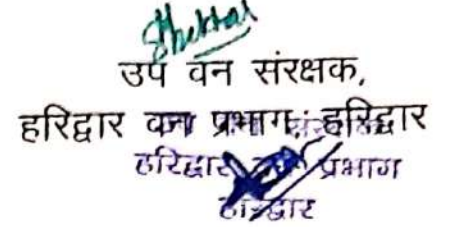 उप वन संरक्षक,
हरिद्वार वन प्रभाग, हरिद्वार
हरिद्वार प्रभाग
हरिद्वार